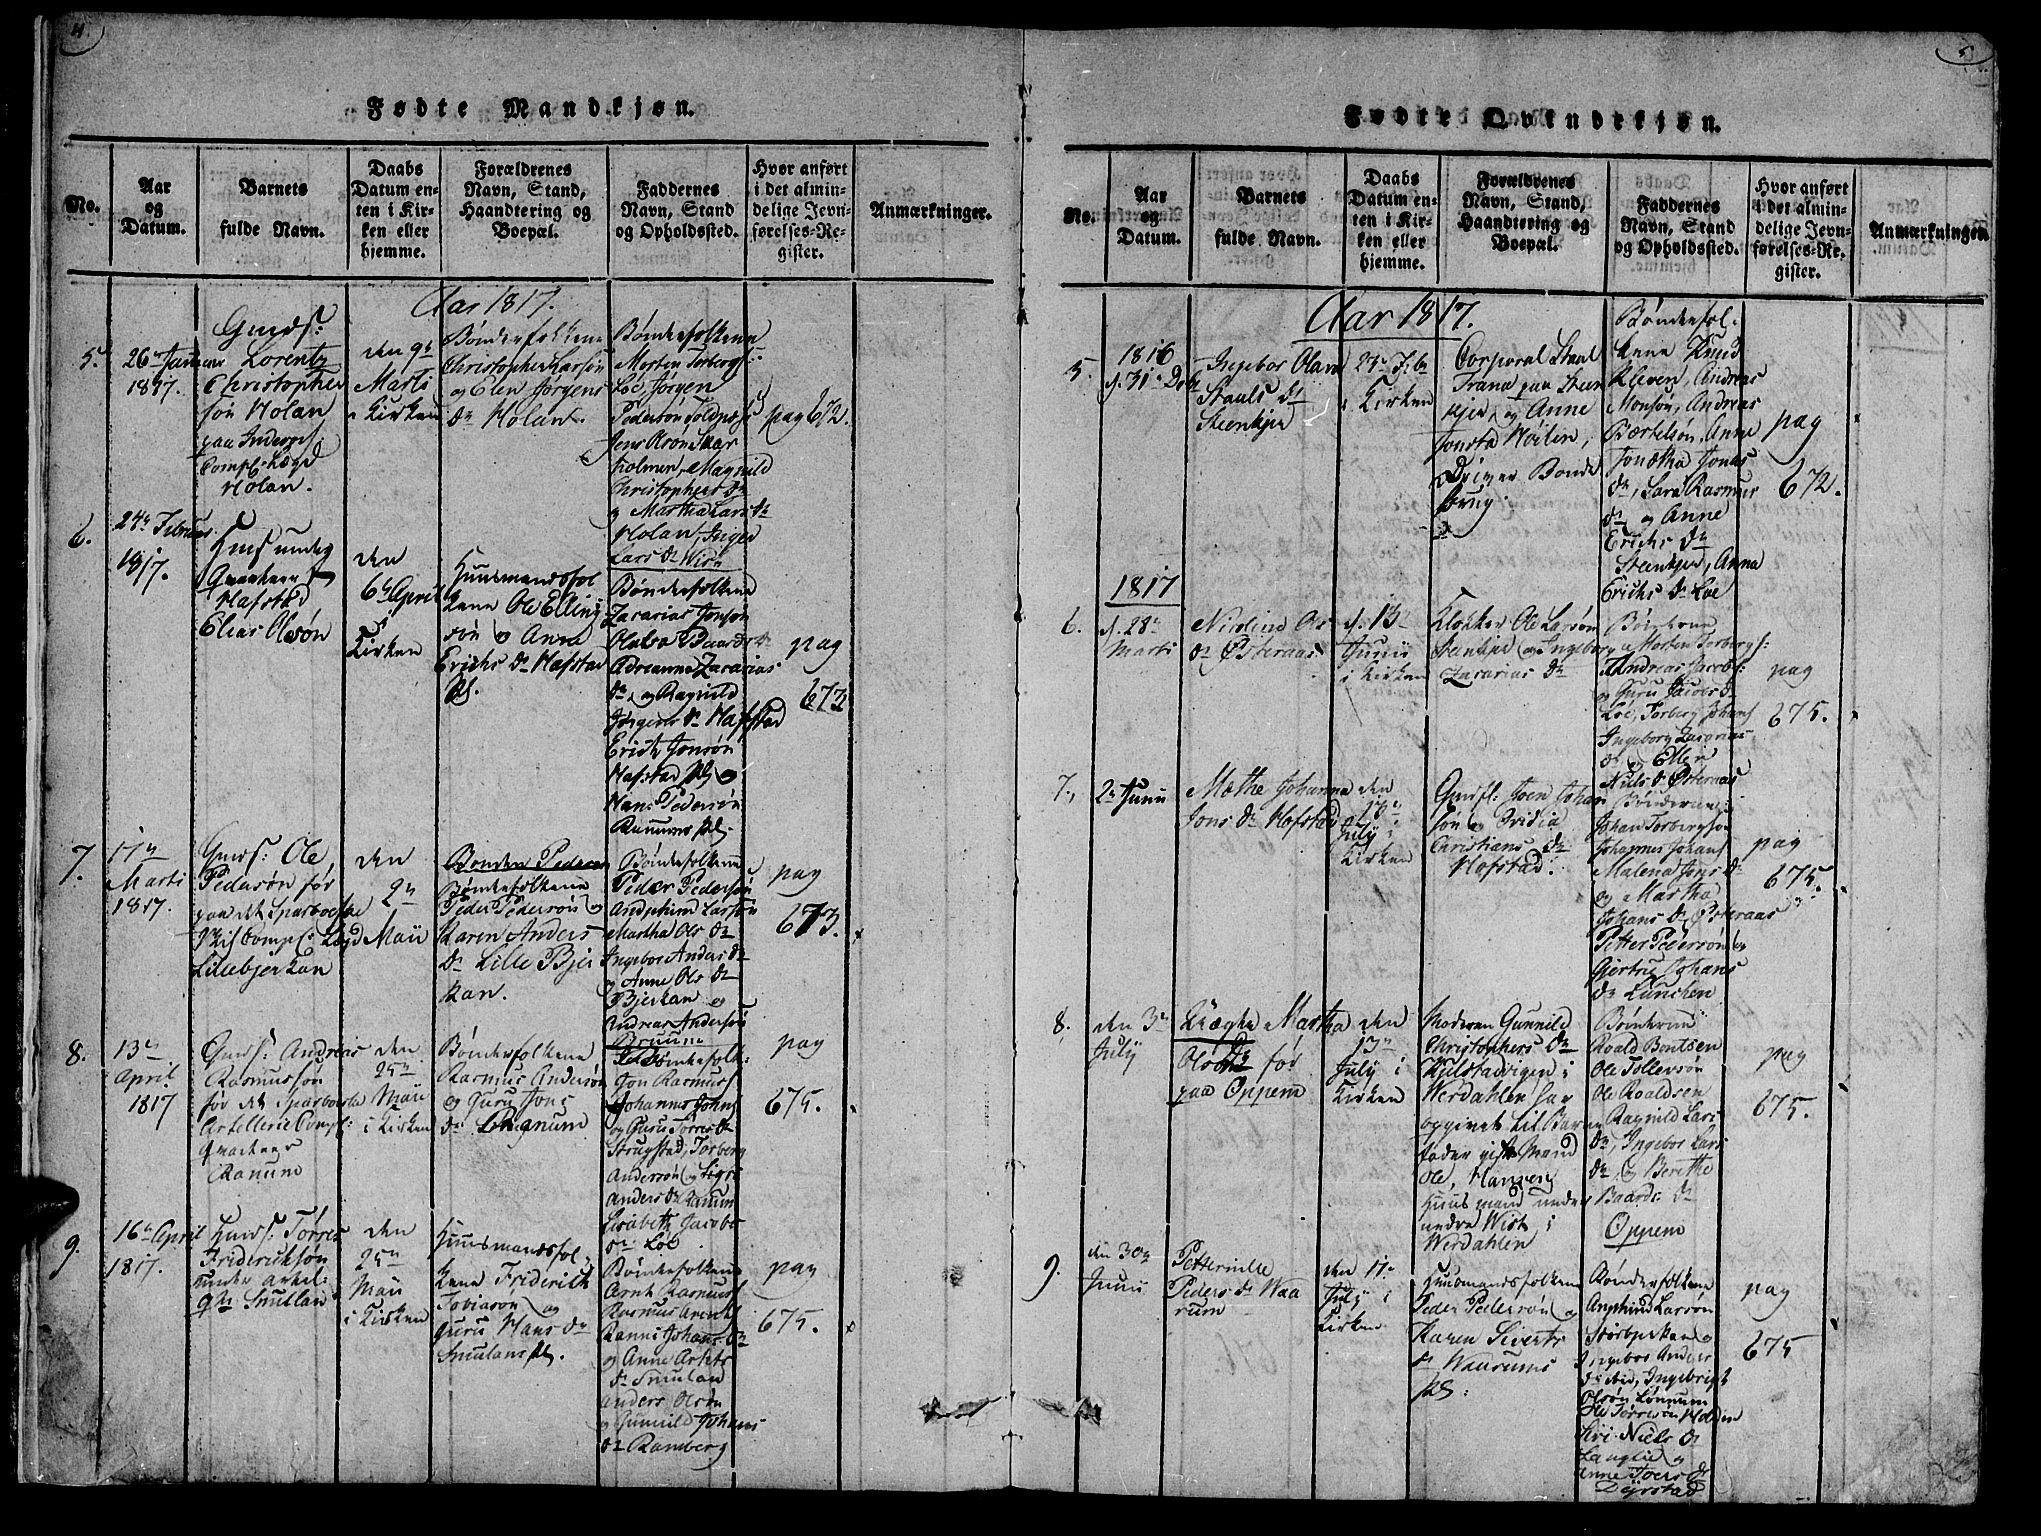 4.
Fødte Mandkjøn.
No.
Aar
og
Datum.
Barnets
fulde Navn.
Daabs
Datum en-
ten i Kir-
ken eller
hjemme.
Forældrenes
Navn, Stand,
Haandtering og
Boepæl.
Faddernes
Navn, Stand
og Opholdssted.
Hvor anført
i det almin-
delige Jevn-
førelses-Re-
gister.
Anmærkninger.
Aar 1817.
5.
1817.
Lorentz
Christopher
søn Holan
Holan.
den 9de
Marti
i Kirken
Bønderfolkene
Christopher Larsøn
og Elen Jørgens
Dr Holan.
Bønderfolkene
Morten Torbergs:
Løe, Jørgen
holmen, Magnild
Christophers Dr
og Martha Lars Dr
Holan, Inger
Lars Dr Wist
pag 672.
6.
24de Februar
1817.
Hafstad
Elias Olsøn
den
6te April
i
Kirken
Huusmandsfol
kene Ole Elling
søn og Anne
Erichs Dr Hafstad
Pl.
Bønderfolkene
Zacarias Jonsøn
Adrianna Zacarias
Dr og Ragnild
Jørgens Dr Hafstad
Erich Jonsøn
Hafstad Pl og
Hans Pedersøn
Ranums Pl.
pag
673
7.
17de
Marti
1817.
Gmds: Ole
Pedersøn før
paa det Sparboeske
Lillebjerkan
den
2den
Maii
Bonden Peder
Bønderfolkene
Peder Pedersøn og
Karen Anders
Dr Lille Bjer
kan.
Bønderfolkene
Peder Pedersøn
Andphim Larsøn
Martha Ols Dr
Ingebor Anders Dr
og Anne Ols Dr
Bjerkan og
Andreas Andersøn
Bruum
pag
673.
8.
13de
April
1817
Gmds: Andreas
Rasmussøn
før det Sparboeske
Artellerie Comp:
Qvarteer
Ranum
den
25de
Maii
i Kirken
Bønderfolkene
Rasmus Andersøn
og Guru Jons
Dr Ranum
Jon Rasmuss
Johannes Johns
og Guru Torres Dr
Strugstad, Torberg
Andersøn og Sigri
Anders Dr Ranum
Lisabeth Jacobs
Dr Løe
pag
675.
9.
16de April
1817.
Gmds: Torres
Fridericksøn
under artel:
Smullan
den
25de
Maii
i Kirken
Huusmandsfol
kene Friderich
Tobiasøn og
Guru Hans Dr
Smulans Pl.
Bønderfolkene
Arnt Rasmuss
Rasmus Arents
Ranni Johans Dr
og Anne Arnts
Dr Smulan
Anders Olsøn
og Gunnild Johans
Dr Ramberg
pag
675.
5
Fødte Qvindekjøn.
No.
Aar
og
Datum.
Barnets
fulde Navn.
Daabs
Datum en-
ten i Kir-
ken eller
hjemme.
Forældrenes
Navn, Stand,
Haandtering og
Boepæl.
Faddernes
Navn, Stand
og Opholdssted.
Hvor anført
i det almin-
delige Jevn-
førelses-Re-
gister.
Anmærkninger.
Aar 1817.
5.
1816
d. 31te Dcbr
Ingebor Olava
Stauls Dr
Steenkjer
i Kirken
Corporal Staul
Trana paa Steen
kjer og Anne
Driver Bonde
brug.
Bønderfol-
kene Knud
Kleven, Andreas
Monsøn, Andreas
Bærtelsøn, Anne
Jonetha Jonas
Dr, Sara Rasmus
Dr og Anne
Erichs Dr
Steenkjer, Anna
Erichs Dr Løe
pag
672.
1817
6.
d. 28de
Marti
Nicoline Ols
Dr Østeraas
d. 13de
Junii
i Kirken
Klokker Ole Larsøn
Steenkjer og Ingeborg
Zacarias Dr
Bønderne
Morten Torbergs:
Andreas Jacobs:
og Guru Jacobs Dr
Løe, Torberg Johans
Ingeborg Zacarias
Dr og Ellen
Niels Dr Østeraas
pag
675.
7.
2de Junii
Mæthe Johanna
Jons Dr Hofstad
den
13de
July i
Kirken
Gmdsfl: Joen Johan
søn og Bridia
Christians Dr
Hofstad.
Bønderne
Johan Torbergsøn
Johannes Johans
Malena Jons Dr
og Martha
Johans Dr Østeraas
Petter Pedersøn og
Gjertru Johans
Dr Lunchen
pag
675.
8.
den 3de
July
Uægte Martha
Ols Dr før
paa Oppem
den
13de
July i
Kirken
Moderen Gunnild
Christophers Dr
Kulstadvigen i
Werdahlen har
opgivet til Barne
fader gift Mand
Ole Hansen
Huusmand under
nedre Wist i
Werdahlen
Bønderne
Roald Bontsen
Ole Tollevsøn
Ole Roaldsen
Ragnild Lars
Dr, Ingebor Lars
Dr, og Berethe
Baards Dr
Oppem
pag
675.
9.
den 30te
Junii
Petternille
Peders Dr Waa
rum
den 17de
July i
Kirken
Huusmandsfolkene
Peder Pedersøn og
Karen Siverts
Dr Waarums
Pl:
Bønderfolkene
Anphind Larsøn
Storbjerkan og
Ingebor Anders
Dr ibid, Ingebrigt
Olsøn Lønnum
Ole Torresøn Holden
Siri Niels Dr
Langlie og
Anne Joers Dr
Dyrstad
pag
675